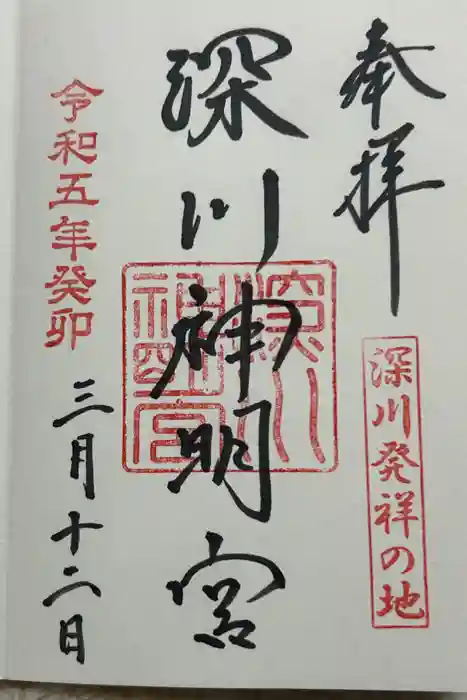 奉拝
深川発祥の地
深川神明宮
深川神明宮
令和五年癸卯
三月十二日